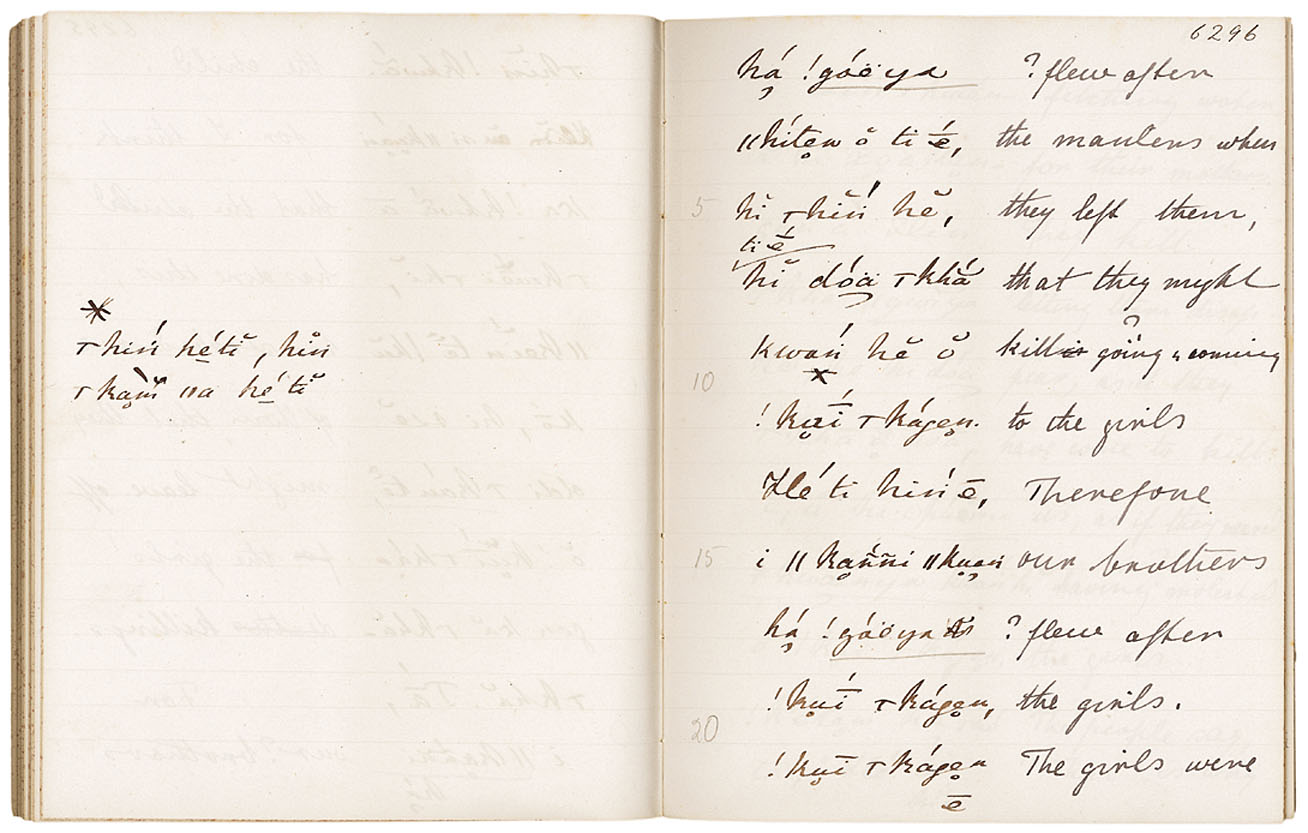 *
⊤hiń hé̱tĭ, hĭn
⊤ka̤m̆ ǁa hé̱tĭ
6296
há̤ !góö ya ? flew after
ǁhíte̤n ŏ ti é̄, the maidens when
5 hĭ ⊤hĭń hĕ, they left them,
ti é̄
hĭ dóä̤ ⊤khă that they might
?
kwań hĕ ŏ kill going " coming
10 *
!kṳí̄ ⊤káge̤n. to the girls
Hé ti hiń ē, Therefore
15 i ǁka̤ññi ǁkṳan our brothers
há̤ !góö ya ? flew after
!kṳí̄ ⊤káge̤n, the girls.
20
!kṳī ⊤káge̤n The girls were
ē